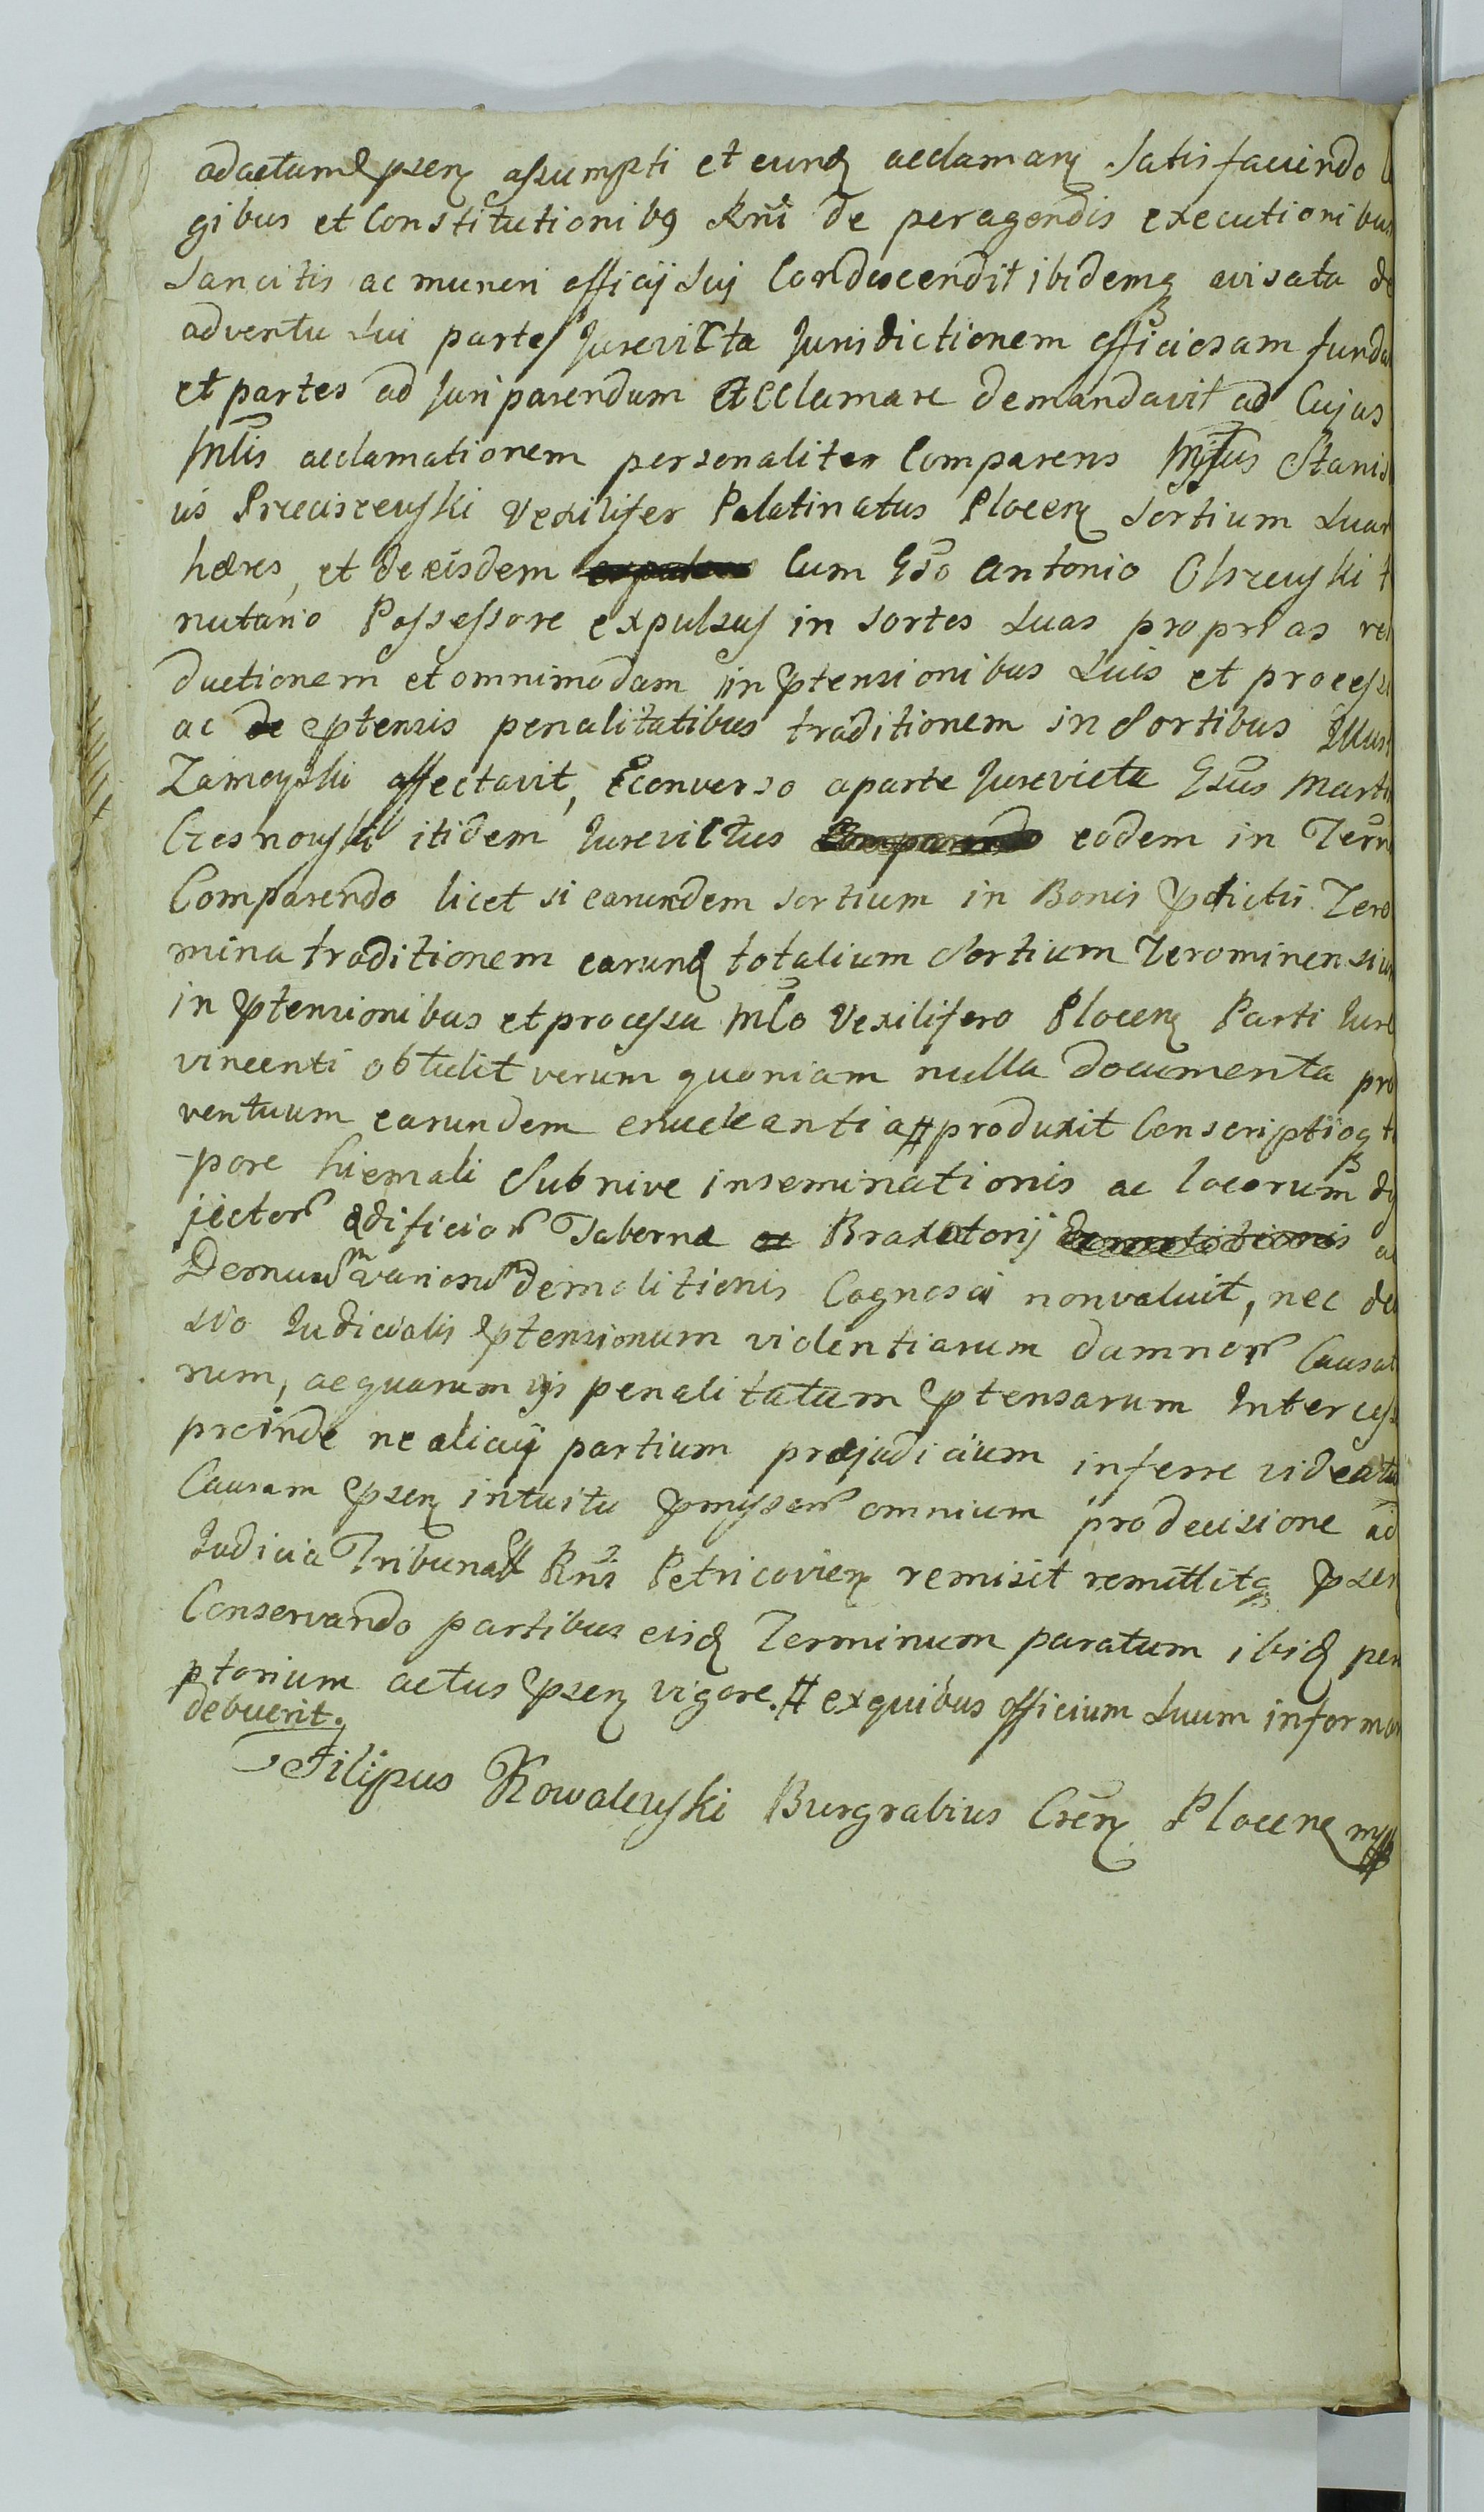 ad actum pṡen assumpti et eund acclamān satisfaciendo le
gibus et Constitutionibꝰ Rni de peragendis executionibus
Sancitis ac muneri officij Sui Condescendit ibidemq avisata de
adventu Sui parte Jurevicta Jurisdictionem officiosam funda
et partes ad Juri parendum acclamare demandavit ad Cujus
Mlis acclamationem personaliter Comparens Mlfus Stanis
us Preciszewski Vexilifer Palatinatus Plocen Sortium Suar
hæres, et de eisdem Cum Gso Antonio Olszewski t
nutario Possessore expulsus in sortes Suas proprias re
ductionem et omnimodam in ptensionibus Suis et processu
ac de ptensis penalitatibus traditionem in Sortibus Illust
Zamoyski affectavit, Econverso a parte Jurevicta Gsus Marti
Czesnowski itidem Jurevictus Comparendo eodem in Termo
Comparendo licet si earundem sortium in Bonis pdictis Zero
mina traditionem earund totalium Sortium Zerominensium
in ptensionibus et processu Mlo Vexilifero Plocen Parti Jure
vincenti obtulit verum quoniam nulla documenta pro
ventuum earundem enucleantia # produxit Conscriptioq te
pore hiemali Sub nive inseminationis ac locorum di
jector ædificior Taberna ac Braxatorij demolitionis ac
Demum variorum demolitionis Cognosci non valuit, nec de
sio Judicialis ptensionum violentiarum damnor Causat
rum, aequarum ijs penalitatum ptensarum Intercess
proinde ne alicuj partium præjudicium inferre videatu
Causam pṡen intuitu pmyssor omnium pro decisione ad
Judicia Tribunall Rni Petricovien remisit remittitq pṡen
Conservando partibus eisd Terminum paratum ibid per
ptorium actus pṡen vigore. # ex quibus officium Suum informa
debuerit.
Filipus Kowalewski Burgrabius Cren Plocen mpp